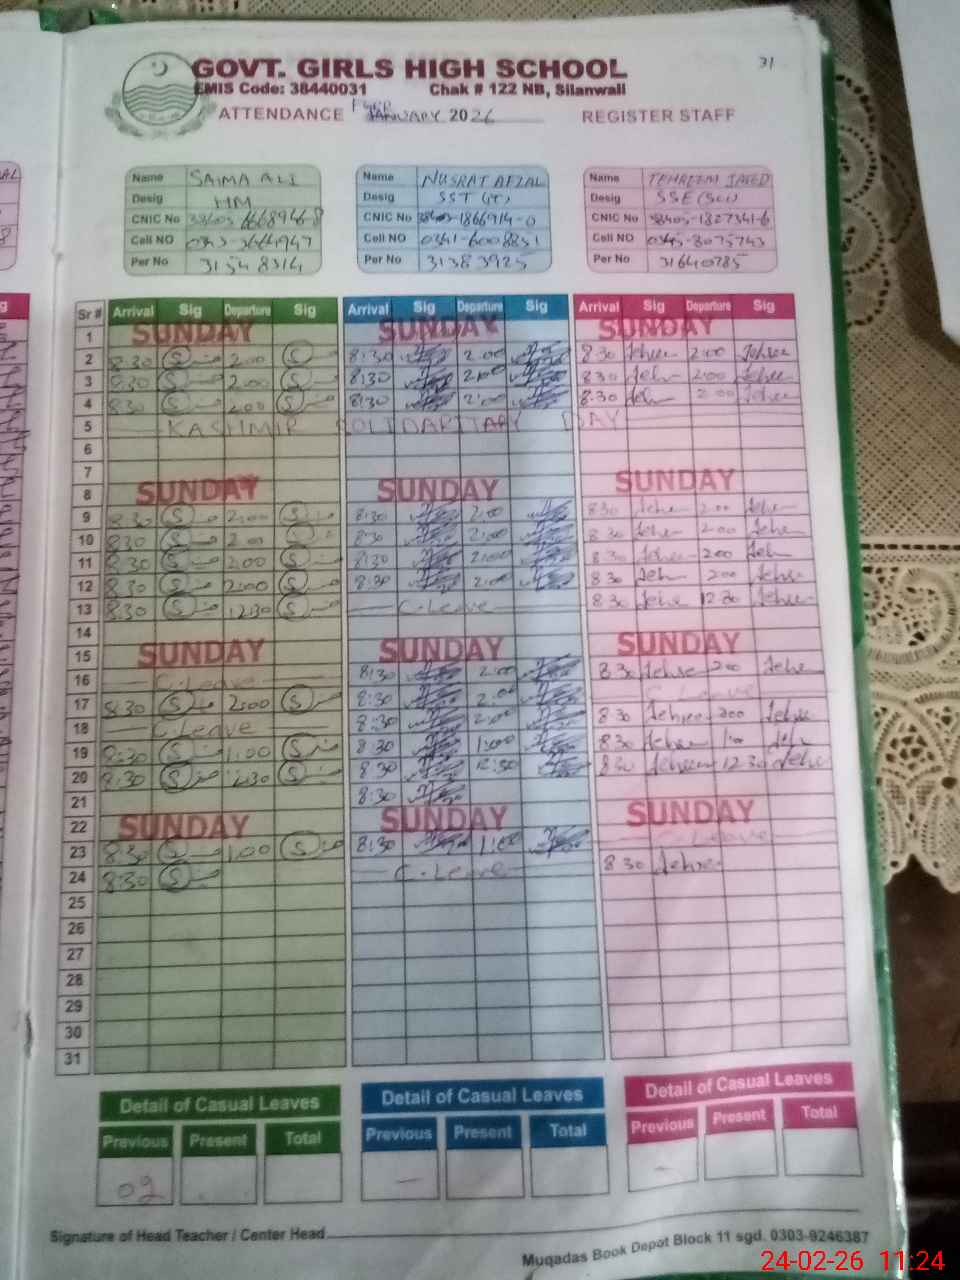 31
GOVT. GIRLS HIGH SCHOOL
EMIS Code: 38440031 Chak # 122 NB, Silanwali
ATTENDANCE JANUARY 2026 REGISTER STAFF
Name SAIMA ALI Name NUSRAT AFZAL Name TEHREEM SAEED
Desig HM Desig SST (IT) Desig SSE (Sci)
CNIC No CNIC No 38403-1866914-0 CNIC No 38405-1827341-6
Cell NO 0343-3664947 Cell NO 0341-6008851 Cell NO 0345-8075743
Per No 31548314 Per No 31383925 Per No 31640785
Sr # Arrival Sig Departure Sig Arrival Sig Departure Sig Arrival Sig Departure Sig
1 SUNDAY SUNDAY SUNDAY
2 8:30 S 2:00 S 8:30 2:00 8 30 2:00
3 8:30 S 2:00 S 8:30 2:00 8 30 2:00
4 8:30 S 2:00 S 8:30 2:00 8 30 2:00
5 KASHMIR SOLIDARITARY DAY
6
7
8 SUNDAY SUNDAY SUNDAY
9 8:30 S 2:00 S 8:30 2:00 8 30 2:00
10 8:30 S 2:00 S 8:30 2:00 8 30 2:00
11 8:30 S 2:00 S 8:30 2:00 8 30 2:00
12 8:30 S 2:00 S 8:30 2:00 8 30 2:00
13 8:30 S 12:30 S C-Leave 8 30 12 30
14
15 SUNDAY SUNDAY SUNDAY
16 C-Leave 8:30 2:00 8 30 2:00
17 8:30 S 2:00 S 8:30 2:00 C-Leave
18 C-Leave 8:30 2:00 8 30 2:00
19 8:30 S 1:00 S 8:30 1:00 8 30 1:00
20 8:30 S 12:30 S 8:30 12:30 8 30 12 30
21 8:30
22 SUNDAY SUNDAY SUNDAY
23 8:30 S 1:00 S 8:30 1:00 C-Leave
24 8:30 S C-Leave 8 30
25
26
27
28
29
30
31
Detail of Casual Leaves Detail of Casual Leaves Detail of Casual Leaves
Previous Present Total Previous Present Total Previous Present Total
02 - -
Signature of Head Teacher / Center Head
Muqadas Book Depot Block 11 sgd. 0303-9246387
24-02-26 11:24